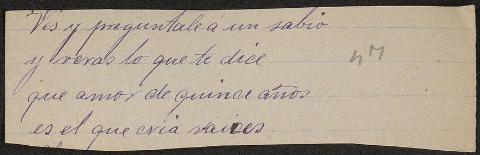 Ves y preguntale á un sabio
y veras lo que te dice
que amor de quince años
es el que cria raices